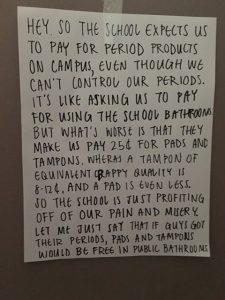 HEY, SO THE SCHOOL EXPECTS US
TO PAY FOR PERIOD PRODUCTS
ON CAMPUS, EVEN THOUGH WE
CAN'T CONTROL OUR PERIODS.
IT'S LIKE ASKING US TO PAY
FOR USING THE SCHOOL BATHROOMS.
BUT WHAT'S WORSE IS THAT THEY
MAKE US PAY 25¢ FOR PADS AND
TAMPONS. WHERAS A TAMPON OF
EQUIVALENT CRAPPY QUALITY IS
8-12¢, AND A PAD IS EVEN LESS.
SO THE SCHOOL IS JUST PROFITING
OFF OF OUR PAIN AND MISERY.
LET ME JUST SAY THAT IF GUYS GOT
THEIR PERIODS, PADS AND TAMPONS
WOULD BE FREE IN PUBLIC BATHROOMS